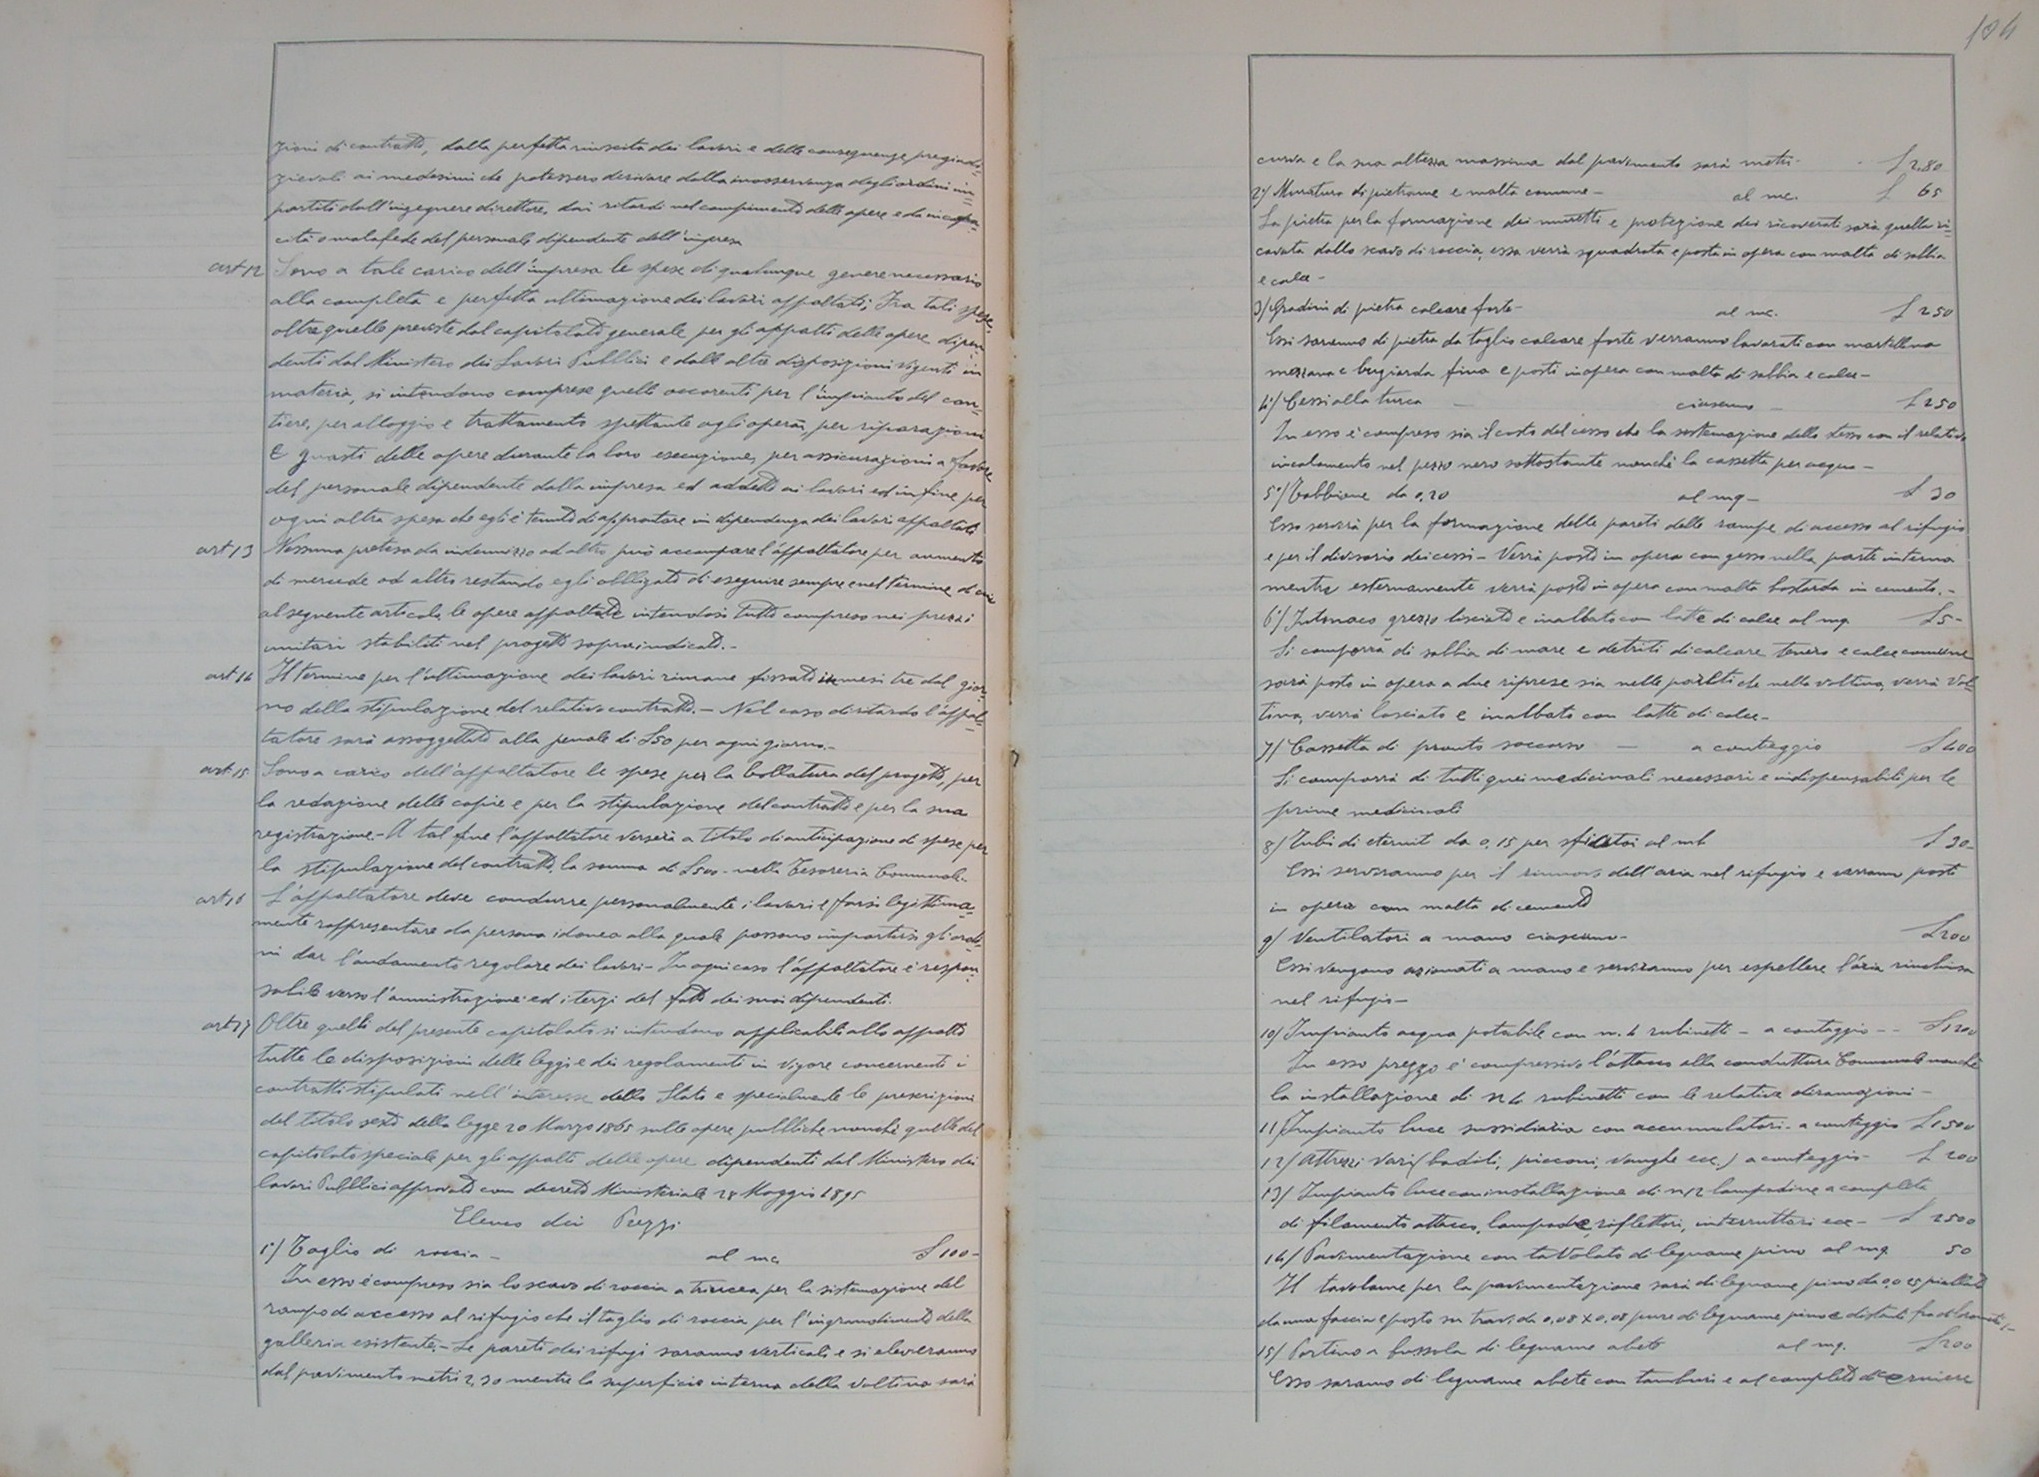 zioni di contratto, dalla perfetta riuscita dei lavori e delle conseguenze pregiudi-
zievoli ai medesimi che potessero derivare dalla inosservanza degli ordini im-
partiti dall'ingegnere direttore, dai ritardi nel compimento delle opere e da incapa-
cità o malafede del personale dipendente dell'impresa
art 12 Sono a tale carico dell'impresa le spese di qualunque genere necessario
alla completa e perfetta ultimazione dei lavori appaltati; Fra tali spese,
oltre quelle previste dal capitolato generale per gli appalti delle opere dipen-
denti dal Ministero dei Lavori Pubblici e dalle altre disposizioni vigenti in
materia, si intendono comprese quelle occorenti per l'impianto del can-
tiere, per alloggio e trattamento spettante agli operai, per riparazioni
e guasti delle opere durante la loro esecuzione, per assicurazioni a favore
del personale dipendente dalla impresa ed addetto ai lavori ed infine per
ogni altra spesa che egli è tenuto di approntare in dipendenza dei lavori appaltati
art 13 Nessuna pretesa da indennizzo od altro può accampare l'appaltatore per aumento
di mercede od altro restando egli obbligato di eseguire sempre e nel termine di cui
al seguente articolo, le opere appaltate intendosi tutto compreso nei prezzi
unitari stabiliti nel progetto sopraindicato.-
art 14 Il termine per l'ultimazione dei lavori rimane fissato in mesi tre dal gior-
no della stipulazione del relativo contratto.- Nel caso di ritardo l'appal-
tatore sarà assoggettato alla penale di £50 per ogni giorno.-
art 15 Sono a carico dell'appaltatore le spese per la bollatura del progetto, per
la redazione delle copie e per la stipulazione del contratto e per la sua
registrazione.- A tal fine l'appaltatore verserà a titolo di anticipazione di spese per
la stipulazione del contratto, la somma di £500.- nella Tesoreria Comunale.
art 16 L'appaltatore deve condurre personalmente i lavori e farsi legittima-
mente rappresentare da persona idonea alla quale possono impartirsi gli ordi-
ni dar l'andamento regolare dei lavori- In ogni caso l'appaltatore è respon-
sabile verso l'amnistrazione ed i terzi del fatto dei suoi dipendenti.
art 17 Oltre quelli del presente capitolato si intendono applicabili allo appalto
tutte le disposizioni delle leggi e dei regolamenti in vigore concernenti i
contratti stipulati nell'interesse dello Stato e specialmente le prescrizioni
del titolo sesto della legge 20 Marzo 1865 sulle opere pubbliche nonchè quelle del
capitolato speciale per gli appalti delle opere dipendenti dal Ministero dei
lavori Pubblici approvato con decreto Ministeriale 28 Maggio 1895
Elenco dei Prezzi
1°/ Taglio di roccia- al mc £ 100-
In esso è compreso sia lo scavo di roccia a trincea per la sistemazione del
rampo di accesso al rifugio che il taglio di roccia per l'ingrandimento della
galleria esistente.- Le pareti dei rifugi saranno verticali e si eleveranno
dal pavimento metri 2,30 mentre la superficie interna della voltina sarà
104
curva e la sua altezza massima dal pavimento sarà metri- £ 2.80
2°/ Muratura di pietrame e malta comune- al mc. £ 65
La pietra per la formazione dei muretti e protezione dei ricoverati sarà quella ri-
cavata dallo scavo di roccia, essa verrà squadrata e posta in opera con malta di sabbia
e calce-
3°/ Gradini di pietra calcare forte- al mc. £ 250
Essi saranno di pietra da taglio calcare forte verranno lavorati con martellina
mezzana e bugiarda fina e posti in opera con malta di sabbia e calce-
4°/ Cessi alla turca - ciascuno - £ 250
In esso è compreso sia il costo del cesso che la sistemazione dello stesso con il relativo
incalamento nel pozzo nero sottostante nonchè la cassetta per acqua-
5°/ Gabbione da 0,20 al mq- £ 30
Esso servirà per la formazione delle pareti delle rampe di accesso al rifugio
e per il divisorio dei cessi- Verrà posto in opera con gesso nella parte interna
mentre esternamente verrà posto in opera con malta bastarda in cemento.-
6°/ Intonaco grezzo lisciato e inalbato con latte di calce al mq £5-
Si comporrà di sabbia di mare e detriti di calcare tenero e calce comune
sarà posto in opera a due riprese sia nelle pareti che nella voltina, verrà vol-
tina, verrà lasciato e inalbato con latte di calce-
7/ Cassetta di pronto soccorso - a conteggio £ 400
Si comporrà di tutti quei medicinali necessari e indispensabili per le
prime medicinali
8/ Tubi di eternit da 0,15 per sfiatatoi al ml £ 30-
Essi serviranno per il rinnovo dell'aria nel rifugio e verranno posti
in opera con malta di cemento
9/ Ventilatori a mano ciascuno- £200
Essi vengono azionati a mano e serviranno per espellere l'aria rinchiusa
nel rifugio-
10/ Impianto acqua potabile con n. 4 rubinetti - a conteggio - - £1200
In esso prezzo è compressivo l'attacco alla conduttura Comunale nonchè
la installazione di n 4 rubinetti con le relative diramazioni-
11/ Impianto luce sussidiaria con accumulatori- a conteggio £1500
12/ Attrezzi vari (badili, picconi, vanghe ecc.) a conteggio- £ 200
13/ Impianto luce con installazione di n 12 lampadine a completa
di filamento attacco, lampade, riflettori, interruttori ecc- £ 2500
14/ Pavimentazione con tavolato di legname pino al mq 50
Il tavolame per la pavimentazione sarà di legname pino da 0,025 piallato
da una faccia e posto su travi da 0,08 x 0,08 pure di legname pino e distanti fra di loro
15/ Portino a bussola di legname abete al mq. £200
Esso saranno di legname abete con tamburi e al completo di cerniere